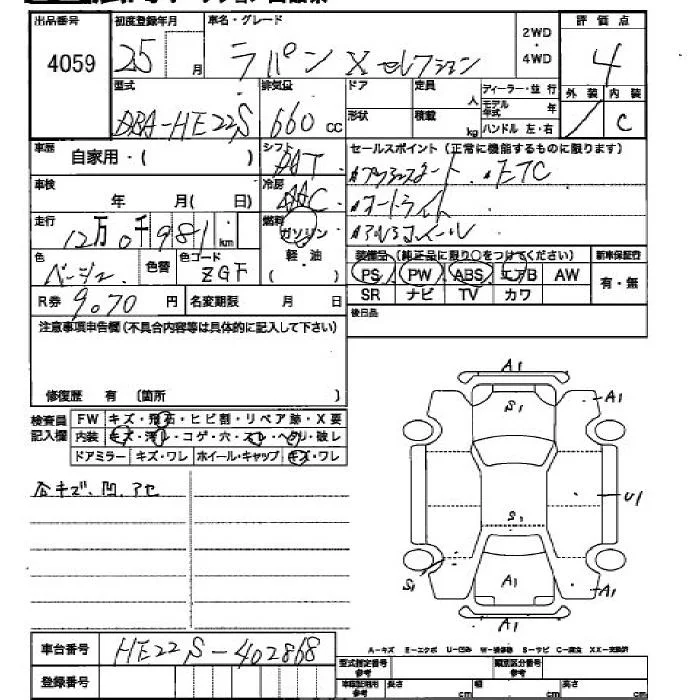 出品番号 初度登録年月 車名・グレード 2WD・4WD 評価点
4059 25 月 ラパン Xセレクション 4
型式 排気量 ドア 定員 人 ディーラー・並行 外装 内装
DBA-HE22S 660 cc 形状 積載 kg モデル年式 年 C
ハンドル 左・右
車歴 自家用・( ) シフト DAT セールスポイント(正常に機能するものに限ります)
車検 年 月( 日) 冷房 AAC ETC
走行 12万0千981km 燃料 ガソリン 軽油 オートライト
アルミホイール
色 ベージュ 色替 色コード ZGF 装備品(純正品に限り○をつけてください) 新車保証書
PS PW ABS エアB AW 有・無
R券 9070円 名変期限 月 日 SR ナビ TV カワ
注意事項申告欄(不具合内容等は具体的に記入して下さい) 後日品
修復歴 有 〔箇所 〕
検査員記入欄 FW キズ・飛石・ヒビ割・リペア跡・X要
内装 キズ・汚レ・コゲ・穴・スレ・ヘタリ・破レ
ドアミラー キズ・ワレ ホイール・キャップ キズ・ワレ
各キズ、凹、アセ
A1
S1 A1
U1
S1
S1 A1 A1
A1
車台番号 HE22S-402868
A-キズ E-エクボ U-凹み W-補修跡 S-サビ C-腐食 XX-交換済
登録番号 型式指定番号 参考 類別区分番号 参考
車庫証明用 参考 長さ cm 幅 cm 高さ cm